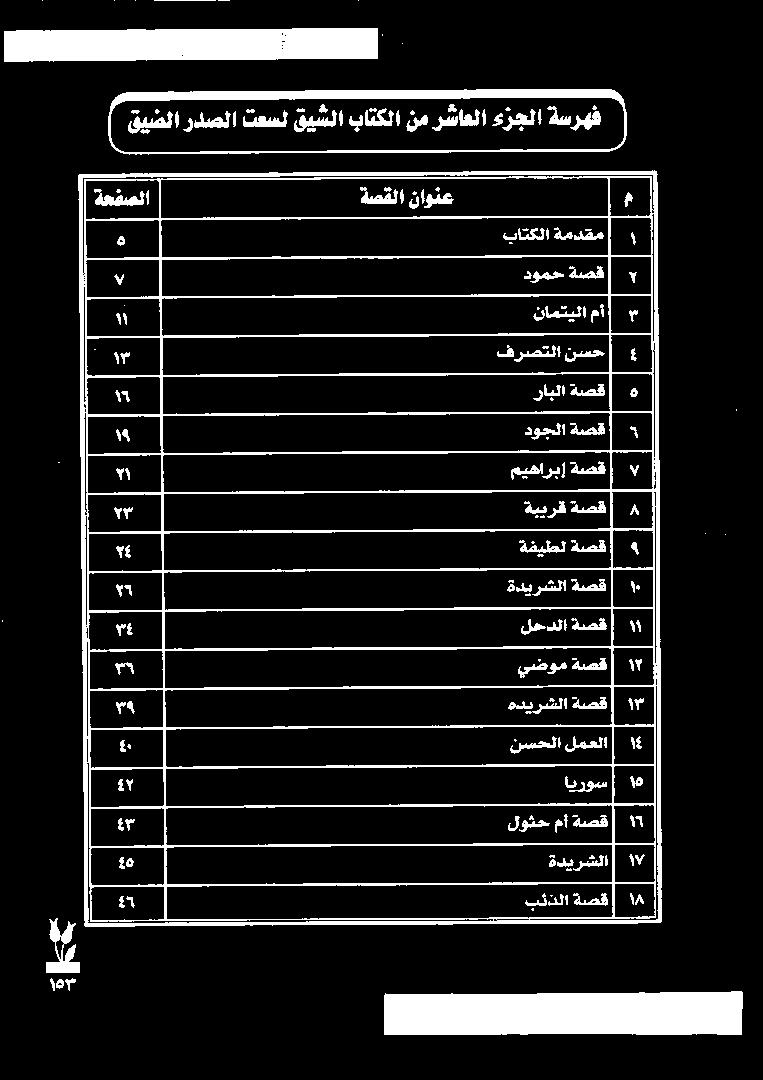 فهرسة الجزء العاشر من الكتاب الشيق لسعت الصدر الضيق
م عنوان القصة الصفحة
١ مقدمة الكتاب ٥
٢ قصة حمود ٧
٣ أم اليتمان ١١
٤ حسن التصرف ١٣
٥ قصة البار ١٦
٦ قصة الجود ١٩
٧ قصة إبراهيم ٢١
٨ قصة قريبة ٢٣
٩ قصة لطيفة ٢٤
١٠ قصة الشريدة ٢٦
١١ قصة الدحل ٣٤
١٢ قصة موضي ٣٦
١٣ قصة الشريده ٣٩
١٤ العمل الحسن ٤٠
١٥ سوريا ٤٢
١٦ قصة أم حثول ٤٣
١٧ الشريدة ٤٥
١٨ قصة الذئب ٤٦
١٥٣